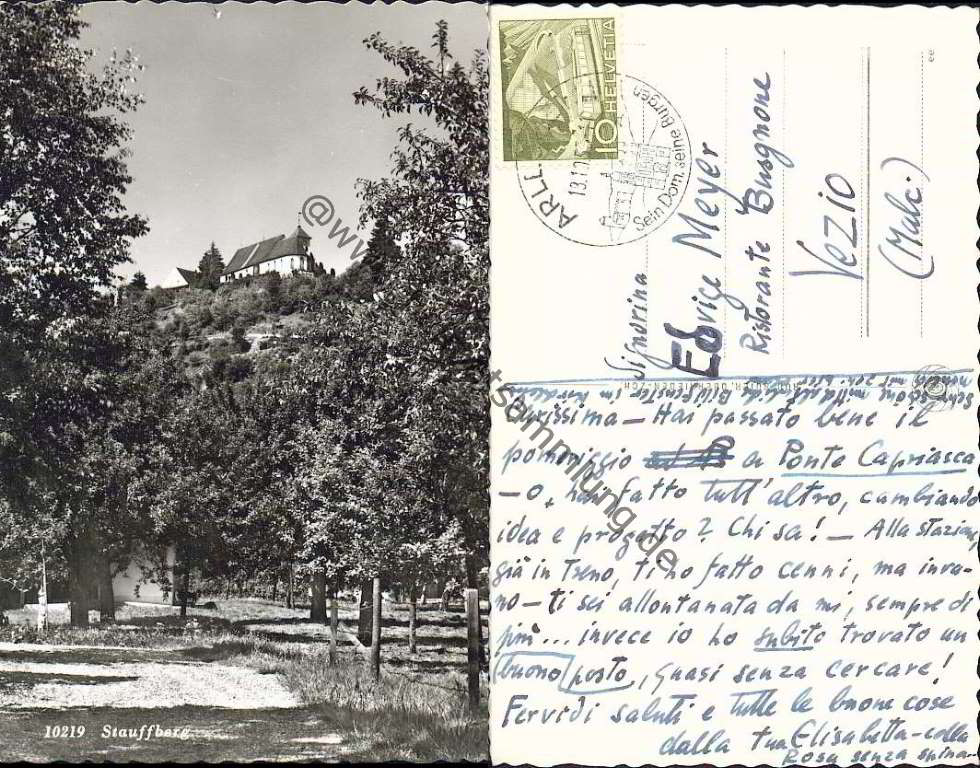 10219 Stauffberg
HELVETIA
10
ARLE
13.1
Sein Dom, seine Burgen
Signorina
Edvige Meyer
Ristorante Busgnone
Vezio
(Malc.)
Carissima - Hai passato bene il
pomeriggio a Ponte Capriasca
- o, hai fatto tutt'altro, cambiando
idea e progetto? Chi sa! - Alla stazione,
già in treno, ti ho fatto cenni, ma inva-
no - ti sei allontanata da mi, sempre di
più... invece io ho subito trovato un
buono posto, quasi senza cercare!
Fervidi saluti e tutte le buone cose
dalla tua Elisabetta - colla
Rosa senza spina -